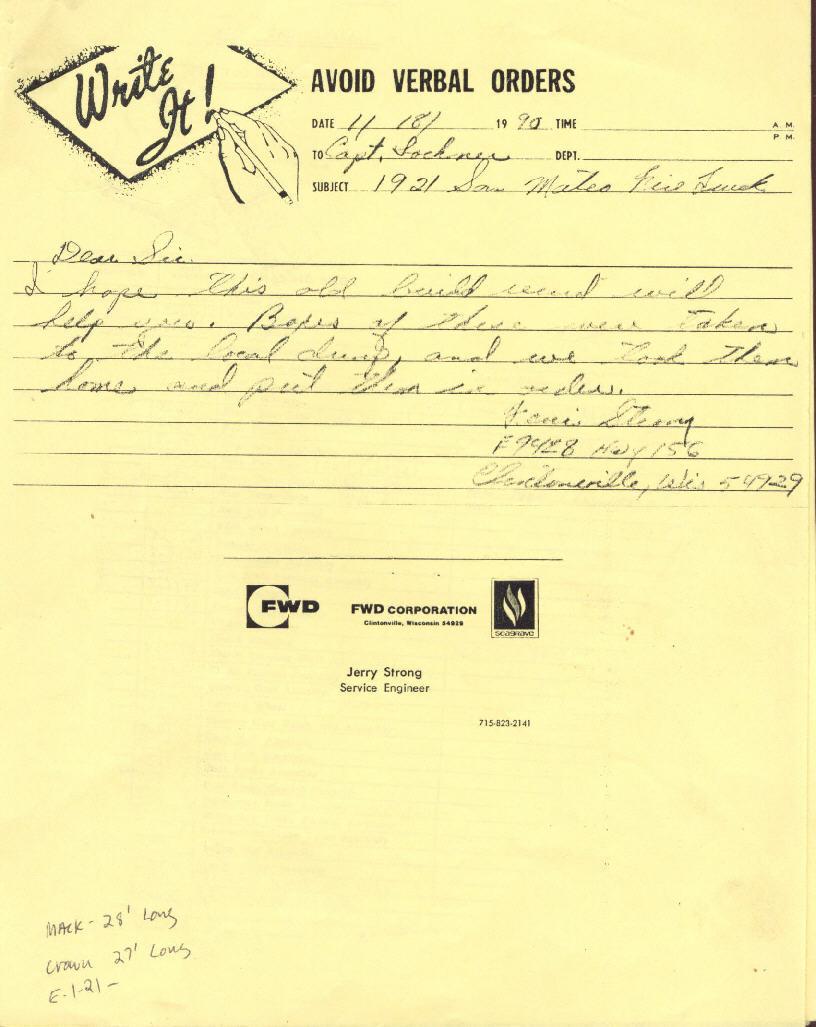 Write
It!
AVOID VERBAL ORDERS
DATE 11 / 18 / 19 90 TIME A. M.
P. M.
TO Capt. Lochner DEPT.
SUBJECT 1921 San Mateo Fire Truck
Dear Sir.
I hope this old build record will
help you. Boxes of these were taken
to the local dump, and we took them
home and put them in order.
Strong
F9428 Hwy 156
Clintonville, Wis 54929
FWD
FWD CORPORATION
Clintonville, Wisconsin 54929
seagrave
Jerry Strong
Service Engineer
715-823-2141
MACK - 28' Long
Crown 27' Long
E-1-21-